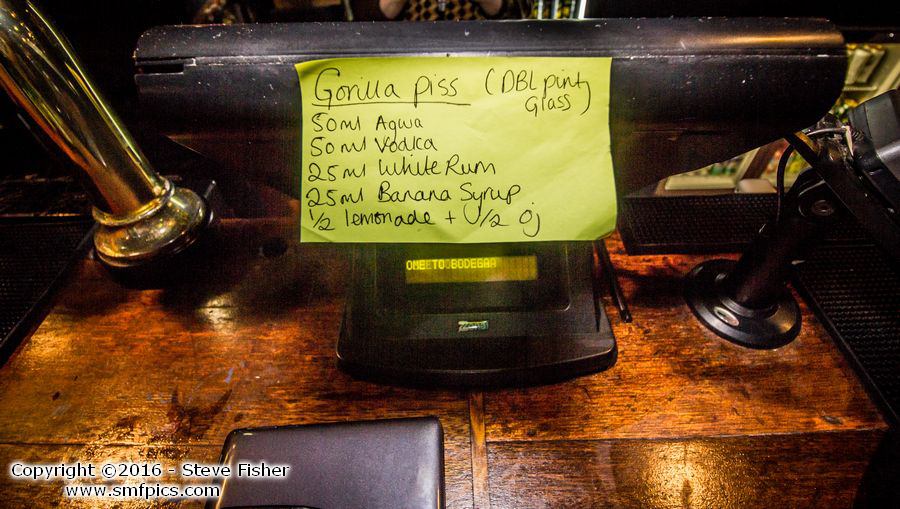 Gorilla piss (DBL pint
Glass)
50ml Agwa
50ml Vodka
25ml White Rum
25ml Banana Syrup
1/2 lemonade + 1/2 Oj
OME TO BODEGA
Copyright ©2016 - Steve Fisher
www.smfpics.com